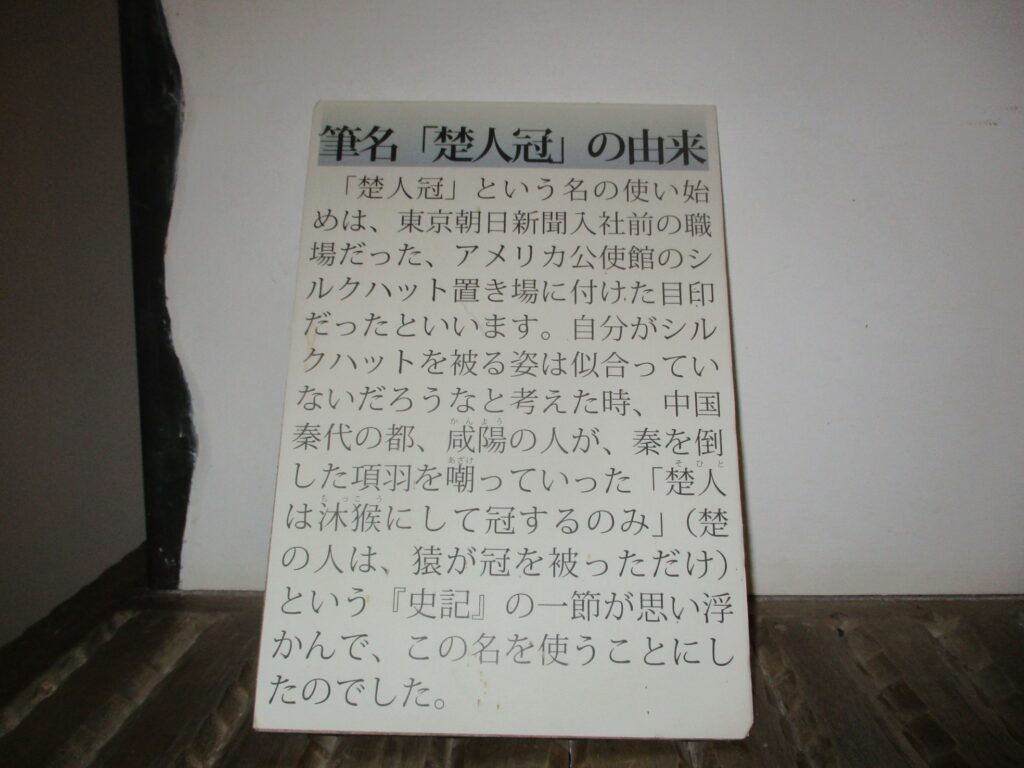 筆名「楚人冠」の由来
「楚人冠」という名の使い始
めは、東京朝日新聞入社前の職
場だった、アメリカ公使館のシ
ルクハット置き場に付けた目印
だったといいます。自分がシル
クハットを被る姿は似合ってい
ないだろうなと考えた時、中国
かんよう
秦代の都、咸陽の人が、秦を倒
あざけ そひと
した項羽を嘲っていった「楚人
もっこう
は沐猴にして冠するのみ」(楚
の人は、猿が冠を被っただけ)
という『史記』の一節が思い浮
かんで、この名を使うことにし
たのでした。